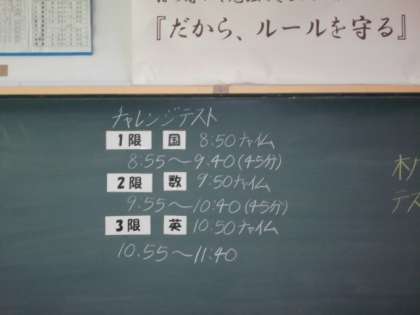 『だから、ルールを守る』
チャレンジテスト
1限 国 8:50チャイム
8:55〜9.40(45分)
2限 数 9.50チャイム
9.55〜10:40(45分)
3限 英 10.50チャイム
10.55〜11:40
テス